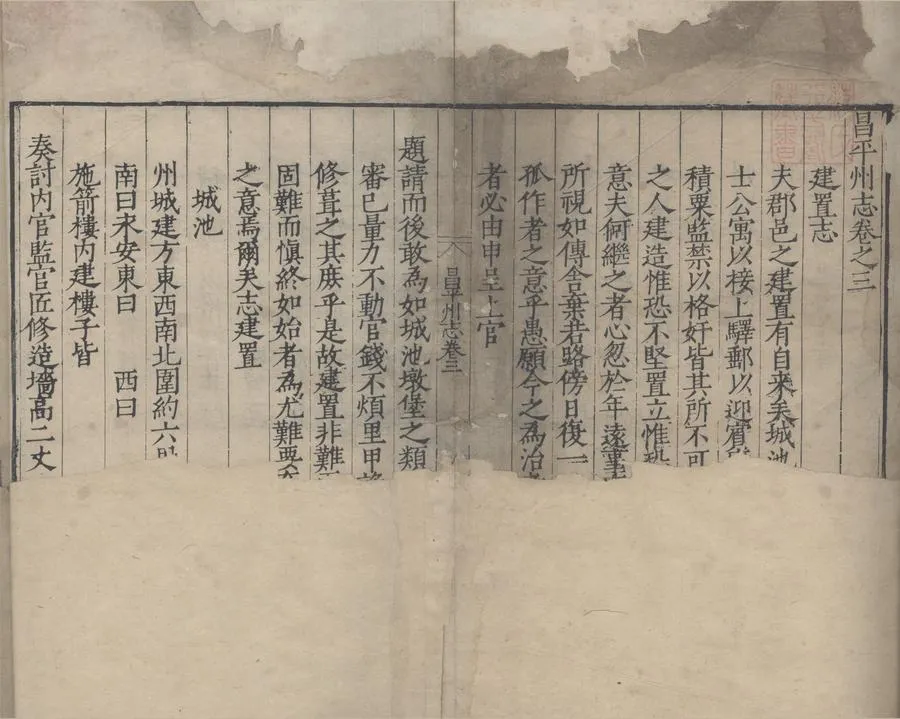 昌平州志卷之三
建置志
夫郡邑之建置有自來矣城池
士公寓以接上驛郵以迎賓
積粟監禁以格奸皆其所不可
之人建造惟恐不堅置立惟恐
意夫何繼之者心忽於年遠
所視如傳舍棄若路傍日復一
孤作者之意乎愚願今之為治
者必由申呈上官
昌平州志卷三
題請而後敢為如城池墩堡之類
審已量力不動官錢不煩里甲
修葺之其庶乎是故建置非難
固難而慎終如始者為尤難要
之意焉爾矣志建置
城池
州城建方東西南北圍約六
南曰永安東曰 西曰
施箭樓內建樓子皆
奏討內官監官匠修造墻高二丈